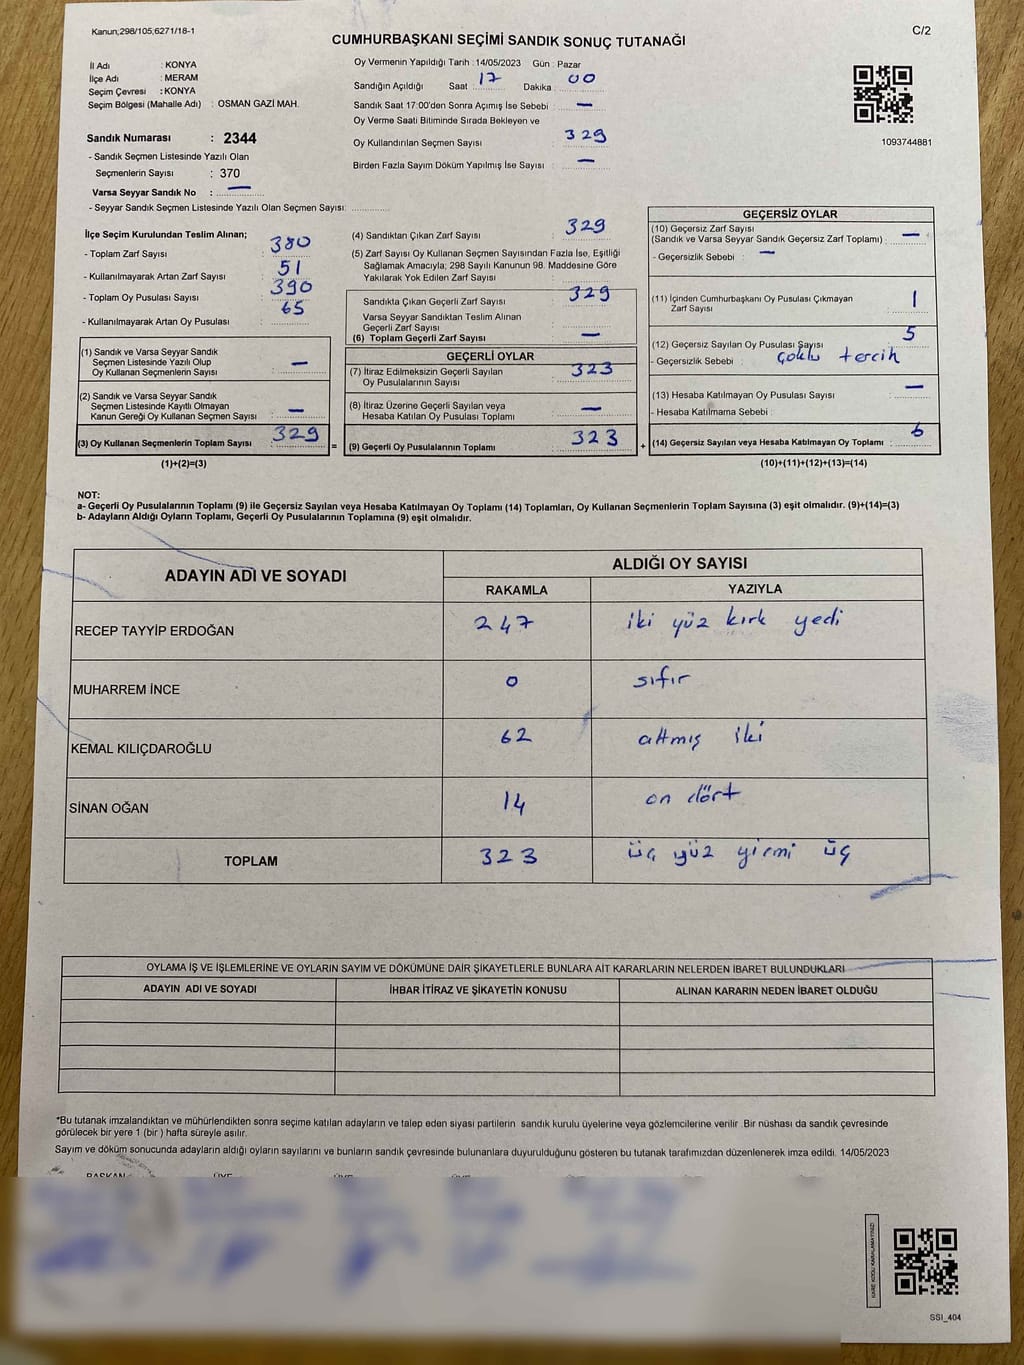 Kanun;298/105;6271/18-1
C/2
CUMHURBAŞKANI SEÇİMİ SANDIK SONUÇ TUTANAĞI
İl Adı : KONYA
İlçe Adı : MERAM
Seçim Çevresi : KONYA
Seçim Bölgesi (Mahalle Adı) : OSMAN GAZİ MAH.
Sandık Numarası : 2344
- Sandık Seçmen Listesinde Yazılı Olan
Seçmenlerin Sayısı : 370
Varsa Seyyar Sandık No : —
- Seyyar Sandık Seçmen Listesinde Yazılı Olan Seçmen Sayısı:
Oy Vermenin Yapıldığı Tarih : 14/05/2023 Gün : Pazar
Sandığın Açıldığı Saat 17 Dakika 00
Sandık Saat 17:00'den Sonra Açımış İse Sebebi : —
Oy Verme Saati Bitiminde Sırada Bekleyen ve
Oy Kullandırılan Seçmen Sayısı : 329
Birden Fazla Sayım Döküm Yapılmış İse Sayısı : —
1093744881
İlçe Seçim Kurulundan Teslim Alınan;
- Toplam Zarf Sayısı : 380
- Kullanılmayarak Artan Zarf Sayısı : 51
- Toplam Oy Pusulası Sayısı : 390
- Kullanılmayarak Artan Oy Pusulası : 65
(1) Sandık ve Varsa Seyyar Sandık
Seçmen Listesinde Yazılı Olup
Oy Kullanan Seçmenlerin Sayısı : —
(2) Sandık ve Varsa Seyyar Sandık
Seçmen Listesinde Kayıtlı Olmayan
Kanun Gereği Oy Kullanan Seçmen Sayısı : —
(3) Oy Kullanan Seçmenlerin Toplam Sayısı : 329 =
(1)+(2)=(3)
(4) Sandıktan Çıkan Zarf Sayısı : 329
(5) Zarf Sayısı Oy Kullanan Seçmen Sayısından Fazla İse, Eşitliği
Sağlamak Amacıyla; 298 Sayılı Kanunun 98. Maddesine Göre
Yakılarak Yok Edilen Zarf Sayısı :
Sandıkta Çıkan Geçerli Zarf Sayısı : 329
Varsa Seyyar Sandıktan Teslim Alınan
Geçerli Zarf Sayısı :
(6) Toplam Geçerli Zarf Sayısı : —
GEÇERLİ OYLAR
(7) İtiraz Edilmeksizin Geçerli Sayılan
Oy Pusulalarının Sayısı : 323
(8) İtiraz Üzerine Geçerli Sayılan veya
Hesaba Katılan Oy Pusulası Toplamı : —
(9) Geçerli Oy Pusulalarının Toplamı : 323 +
GEÇERSİZ OYLAR
(10) Geçersiz Zarf Sayısı
(Sandık ve Varsa Seyyar Sandık Geçersiz Zarf Toplamı) : —
- Geçersizlik Sebebi : —
(11) İçinden Cumhurbaşkanı Oy Pusulası Çıkmayan
Zarf Sayısı : 1
(12) Geçersiz Sayılan Oy Pusulası Sayısı : 5
- Geçersizlik Sebebi : çoklu tercih
(13) Hesaba Katılmayan Oy Pusulası Sayısı : —
- Hesaba Katılmama Sebebi :
(14) Geçersiz Sayılan veya Hesaba Katılmayan Oy Toplamı : 6
(10)+(11)+(12)+(13)=(14)
NOT:
a- Geçerli Oy Pusulalarının Toplamı (9) ile Geçersiz Sayılan veya Hesaba Katılmayan Oy Toplamı (14) Toplamları, Oy Kullanan Seçmenlerin Toplam Sayısına (3) eşit olmalıdır. (9)+(14)=(3)
b- Adayların Aldığı Oyların Toplamı, Geçerli Oy Pusulalarının Toplamına (9) eşit olmalıdır.
ADAYIN ADI VE SOYADI
ALDIĞI OY SAYISI
RAKAMLA YAZIYLA
RECEP TAYYİP ERDOĞAN 247 iki yüz kırk yedi
MUHARREM İNCE 0 sıfır
KEMAL KILIÇDAROĞLU 62 altmış iki
SİNAN OĞAN 14 on dört
TOPLAM 323 üç yüz yirmi üç
OYLAMA İŞ VE İŞLEMLERİNE VE OYLARIN SAYIM VE DÖKÜMÜNE DAİR ŞİKAYETLERLE BUNLARA AİT KARARLARIN NELERDEN İBARET BULUNDUKLARI
ADAYIN ADI VE SOYADI İHBAR İTİRAZ VE ŞİKAYETİN KONUSU ALINAN KARARIN NEDEN İBARET OLDUĞU
*Bu tutanak imzalandıktan ve mühürlendikten sonra seçime katılan adayların ve talep eden siyasi partilerin sandık kurulu üyelerine veya gözlemcilerine verilir. Bir nüshası da sandık çevresinde
görülecek bir yere 1 (bir ) hafta süreyle asılır.
Sayım ve döküm sonucunda adayların aldığı oyların sayılarını ve bunların sandık çevresinde bulunanlara duyurulduğunu gösteren bu tutanak tarafımızdan düzenlenerek imza edildi. 14/05/2023
BAŞKAN ÜYE ÜYE ÜYE ÜYE
KARE KODU KARALAMAYINIZ!
SSI_404